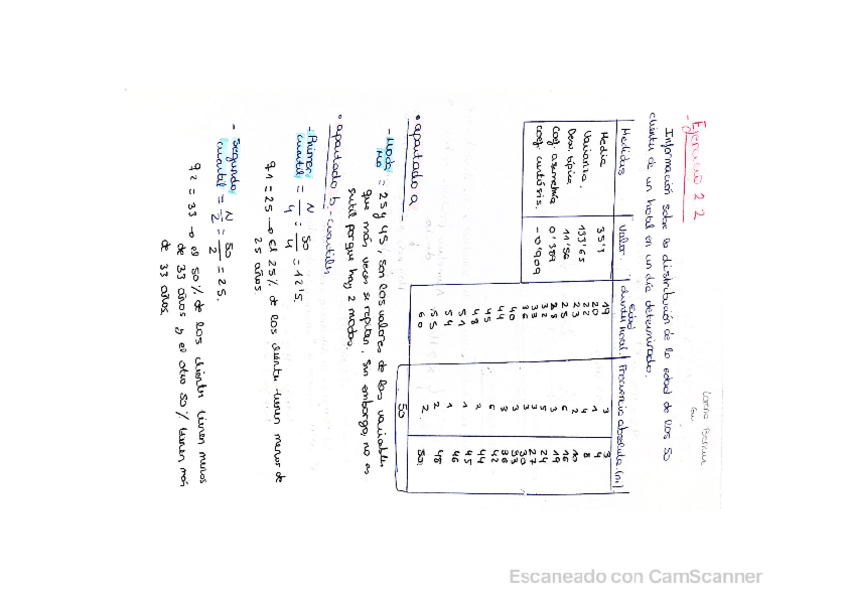 Ejercicio 2 2
Información sobre la distribución de la edad de los 50
clientes de un hotel en un día determinado.
Medidas Valor
Media 35'1
Varianza. 133'65
Desv típica 11'56
Coef. asimetría
coef. curtósis. -0'909
edad
clientes hotel. Frecuencia absoluta (ni)
19 3 3
20 1 4
22 4 8
23 2 10
25 6 16
28 3 19
32 5 24
33 3 27
36 3 30
40 3 33
44 3 36
45 6 42
48 2 44
51 1 45
54 1 46
55 2 48
60 2 50
50
• apartado a
- Moda Mo = 25 y 45, son los valores de las variables
que más veces se repiten, sin embargo, no es
sutil porque hay 2 modas.
• apartado b - cuartiles
- Primer cuartil = N/4 = 50/4 = 12'5.
q1 = 25 → el 25% de los clientes tienen menos de
25 años
- Segundo cuartil = N/2 = 50/2 = 25.
q2 = 33 → el 50% de los clientes tienen menos
de 33 años y el otro 50% tienen más
de 33 años.
Escaneado con CamScanner